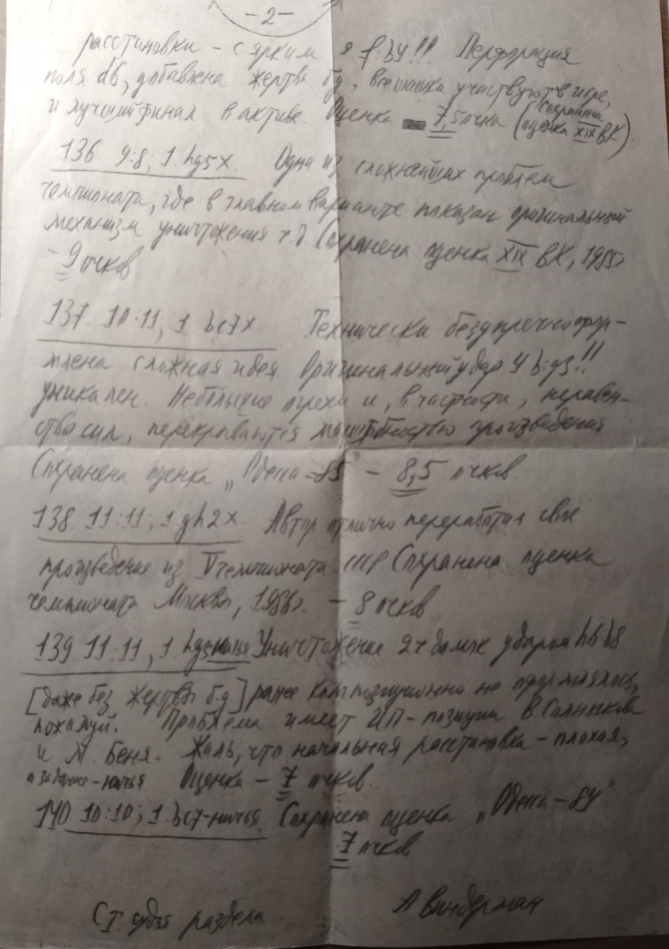 - 2 -
расстановки - с ярким я f by!! Перфорация
поля d6, добавлена жертва б.д., участвуют в игре,
и лучший финал в активе. Оценка - 7,5 очка (сохранена
оценка XIX ВК).
136. 9:8, 1. hg5x. Одна из сложнейших проблем
чемпионата, где в главном варианте показан оригинальный
механизм уничтожения ч.д. Сохранена оценка XIX ВК, 1985г
- 9 очков
137. 10:11, 1. bc7x. Технически безупречно офор-
млена сложная идея. Оригинальный удар 4. b:g3!!
уникален. Небольшие огрехи и, в частности, неравен-
ство сил, перекрываются масштабностью произведения
Сохранена оценка „Одесса-85" - 8,5 очков
138. 11:11, 1. gh2x. Автор отлично переработал своё
произведение из V чемпионата СССР. Сохранена оценка
чемпионата Москвы, 1986г. - 8 очков
139. 11:11, 1. hg5 ничья. Уничтожение 2 ч. дамок ударом
[даже без жертвы б.д.] ранее композиционно не оформлялось,
пожалуй. Проблема имеет ИП-позиции В. Солнчкова
и М. Беня. Жаль, что начальная расстановка - плохая,
а задание - ничья. Оценка - 7 очков.
140. 10:10, 1. bc7 - ничья. Сохранена оценка „Одесса-84"
7 очков
Ст. судья раздела Л Виндерман